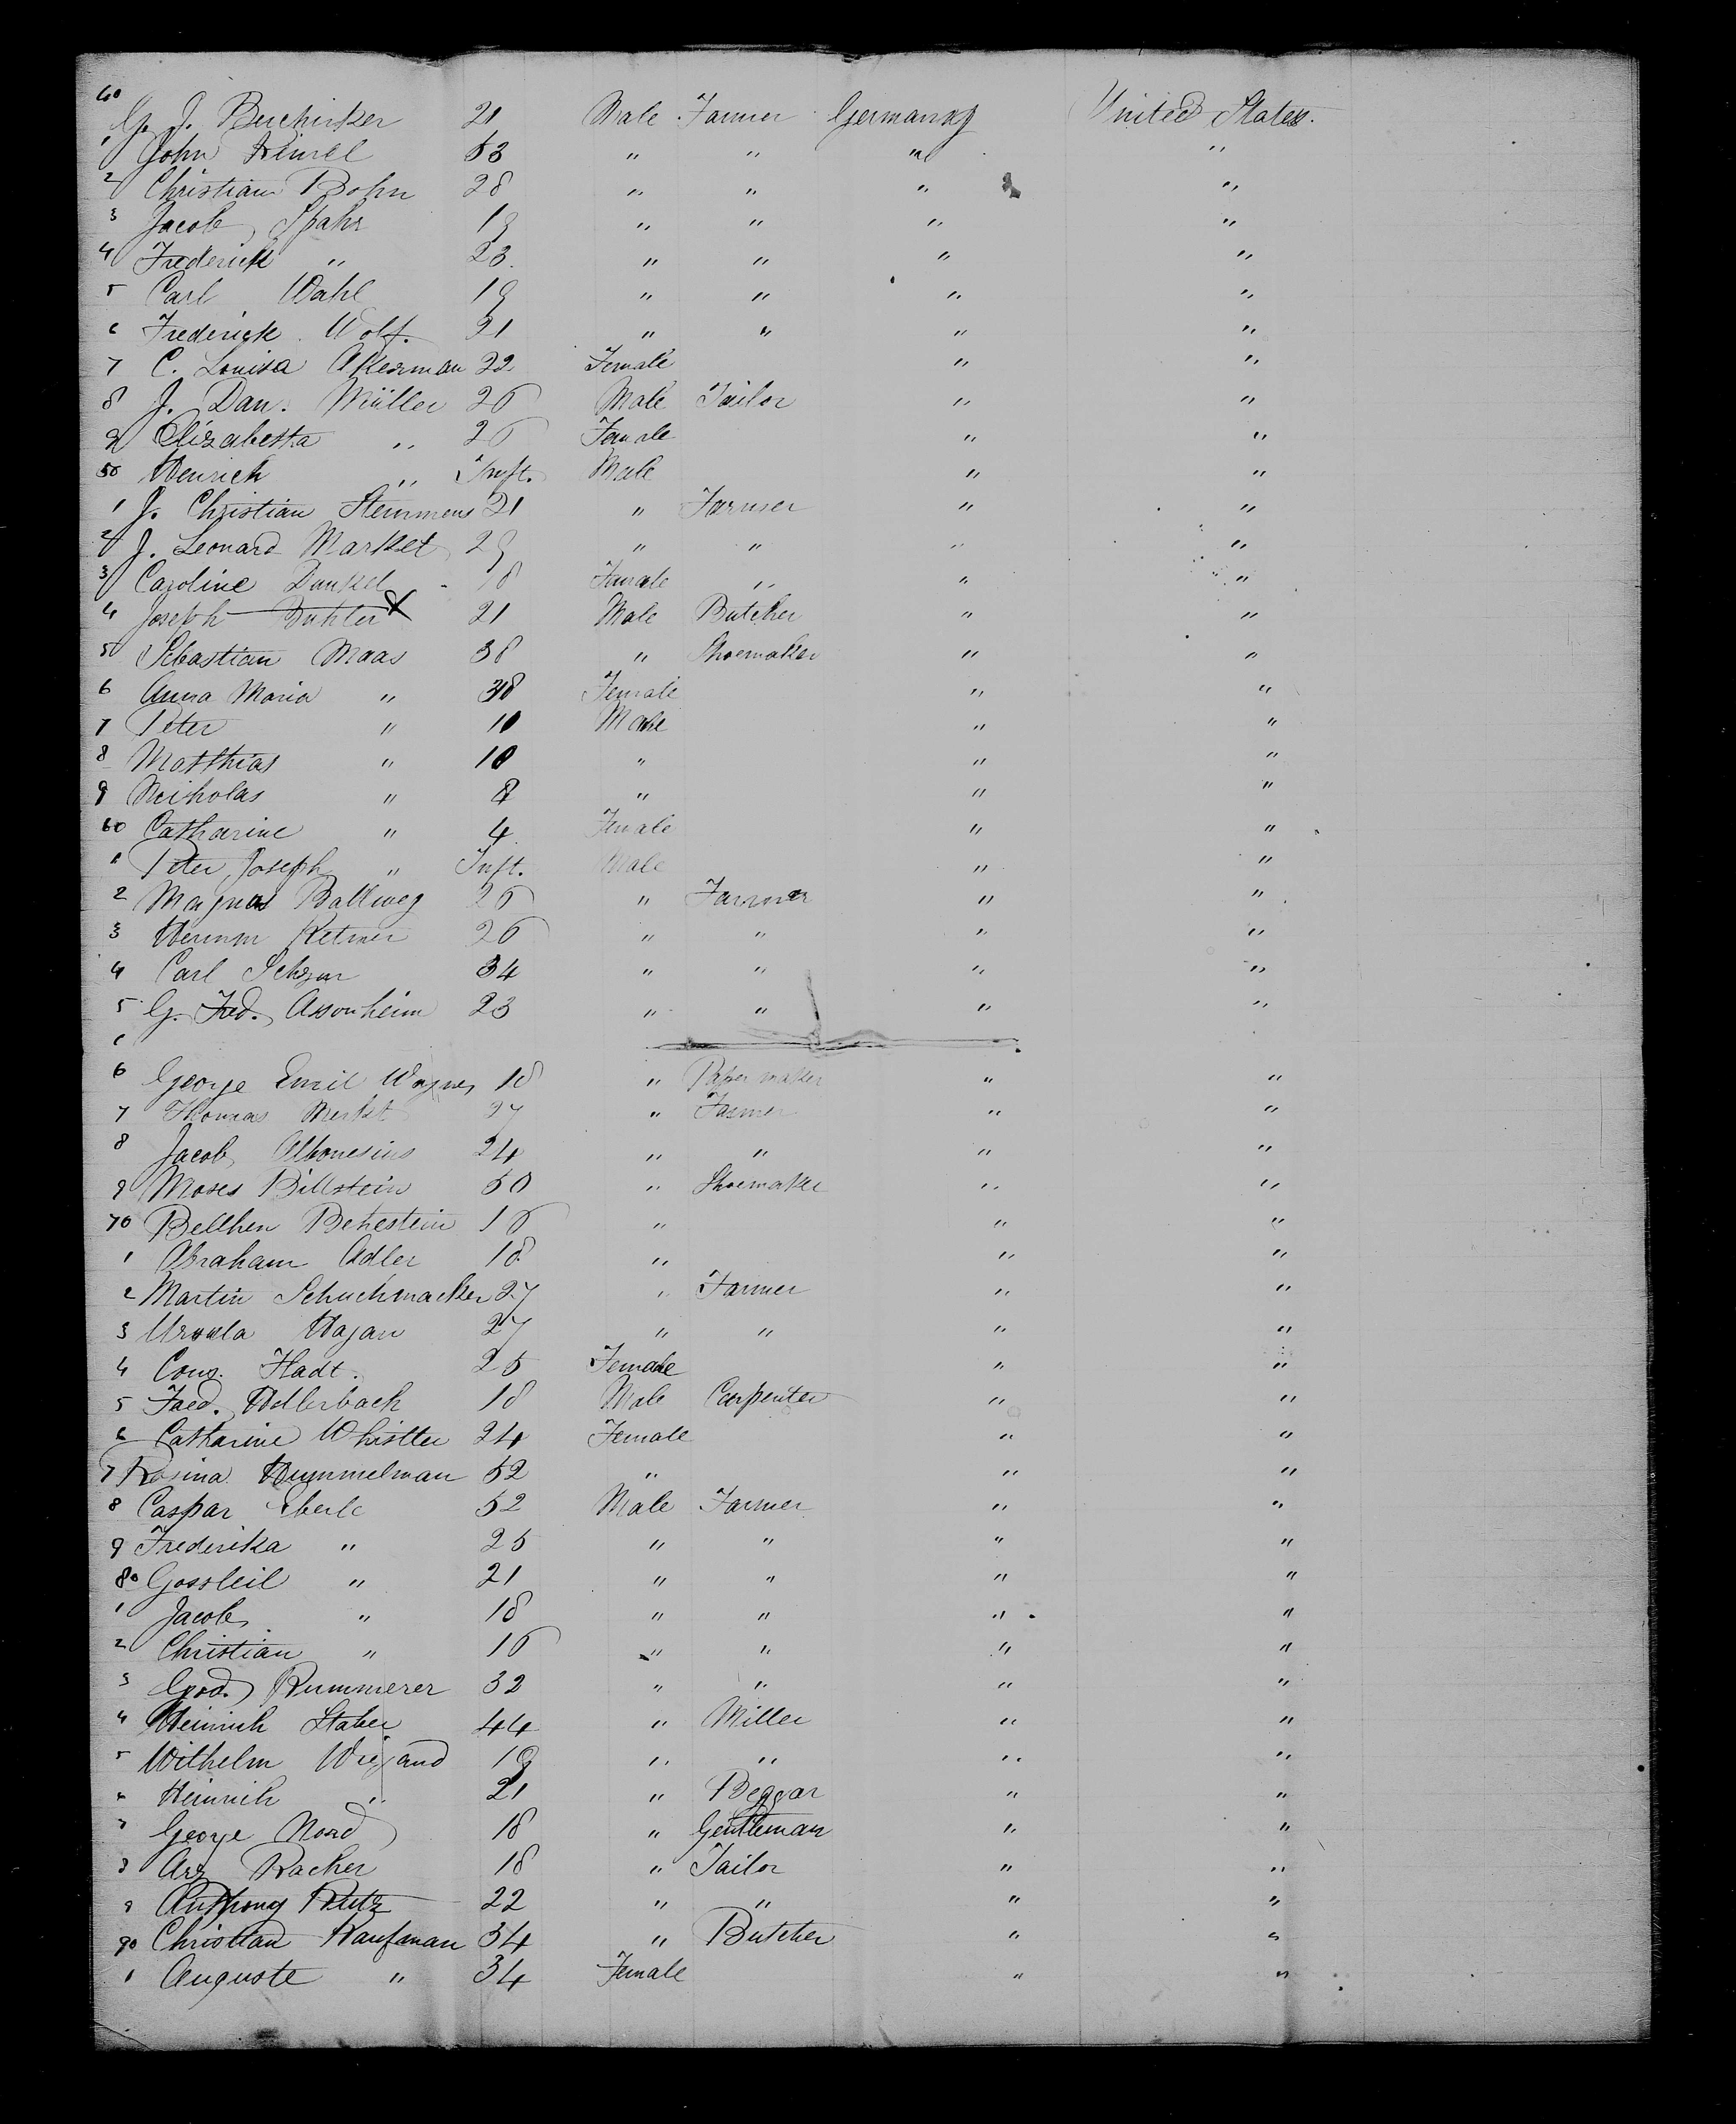 40 G. J. Buchirker 21 Male Farmer Germany United States.
1 John Kimel 53 " " " "
2 Christian Bohn 28 " " " "
3 Jacob Spahr 19 " " " "
4 Frederick " 23. " " " "
5 Carl Wahl 19 " " " "
6 Frederick Wolf. 21 " " " "
7 C. Louisa Akerman 22 Female " "
8 J. Dan. Müller 26 Male Tailor " "
9 Elizabetta " 26 Female " "
50 Henrich " Inft. Male " "
1 J. Christian Stemmens 21 " Farmer " "
2 J. Leonard Market 29 " " " "
3 Caroline Dunkel 18 Female " " "
4 Joseph Buhler X 21 Male Butcher " "
5 Sebastian Maas 38 " Shoemaker " "
6 Anna Maria " 38 Female " "
7 Peter " 10 Male " "
8 Matthias " 10 " " "
9 Neikolas " 8 " " "
60 Catharine " 4 Female " "
1 Peter Joseph " Inft. Male " "
2 Magnas Ballweg 26 " Farmer " "
3 Hermn Ketmer 26 " " " "
4 Carl 34 " " " "
5 G. Fred. Assonheim 23 " " " "
6
6 George Emil Wagner 18 " Paper maker " "
7 Thomas Merket 27 " Farmer " "
8 Jacob Albonesius 24 " " " "
9 Moses Billstein 50 " Shoemaker " "
70 Bellhen Betrestein 16 " " "
1 Abraham Adler 18 " " "
2 Martin Schuchmacker 27 " Farmer " "
3 Ursula Hagan 27 " " " "
4 Cons. Hadt. 25 Female " "
5 Fred. Adlerbach 18 Male Carpenter " "
6 Catharine Whistler 24 Female " "
7 Rosina Hummelman 52 " " "
8 Caspar Eberle 52 Male Farmer " "
9 Frederika " 25 " " " "
80 Gossleil " 21 " " " "
1 Jacob " 18 " " " "
2 Christian " 16 " " " "
3 God. Kummerer 32 " " " "
4 Heinrich Staber 44 " Miller " "
5 Wilhelm Wiegand 19 " " " "
6 Heinrich " 21 " Beggar " "
7 George Nord 18 " Gentleman " "
8 Arz Kacher 18 " Tailor " "
9 Anthony Rutz 22 " " " "
90 Christian Kaufman 34 " Butcher " "
1 Auguste " 34 Female " "